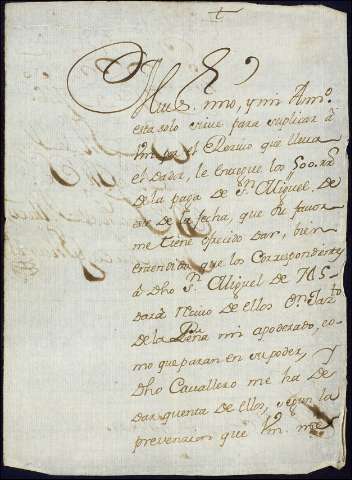 +
Muy S.r mio, y mi Am.o
esta solo sirve para suplicar à
Vm. que el Recivo que lleva
el Dador, le entregue los 500. r.s
de la paga de S.n Miguel, De
de la fecha, que su favor
me tiene ofrecido dar, bien
entendido, que los Correspondientes
à Dho S.n Miguel de 745
dará recivo de ellos D.n
de la Peña mi apoderado, co-
mo que paran en su poder, y
Dho Cavallero me ha de
dar quenta de ellos, segun la
prevencion que Vm. me